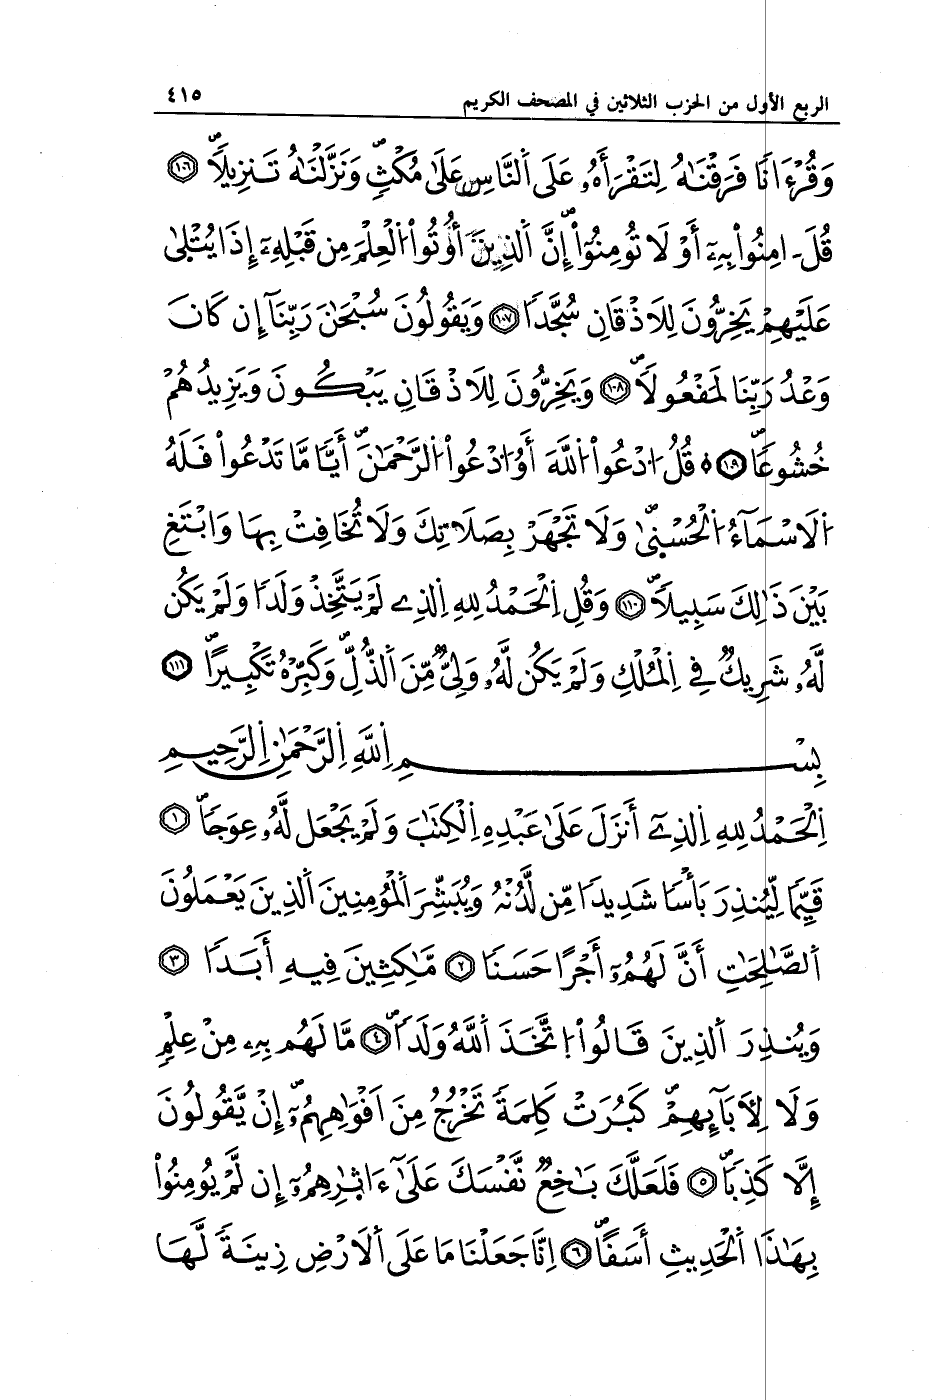 الربع الأول من الحزب الثلاثين في المصحف الكريم ٤١٥
وَقُرْءَانًا فَرَقْنَٰهُ لِتَقْرَأَهُۥ عَلَى اَ۬لنَّاسِ عَلَىٰ مُكْثٖ وَنَزَّلْنَٰهُ تَنزِيلاٗ ١٠٦
قُلَ ـ اٰمِنُواْ بِهِۦٓ أَوْ لَا تُومِنُوٓاْ إِنَّ اَ۬لذِينَ أُوتُواْ اُ۬لْعِلْمَ مِن قَبْلِهِۦٓ إِذَا يُتْلَىٰ
عَلَيْهِمْ يَخِرُّونَ لِلَاذْقَانِ سُجَّداٗ ١٠٧ وَيَقُولُونَ سُبْحَٰنَ رَبِّنَآ إِن كَانَ
وَعْدُ رَبِّنَا لَمَفْعُولاٗ ١٠٨ وَيَخِرُّونَ لِلَاذْقَانِ يَبْكُونَ وَيَزِيدُهُمْ
خُشُوعاٗ ١٠٩ ۞ قُلُ اُ۟دْعُواْ اُ۬للَّهَ أَوُ اُ۟دْعُواْ اُ۬لرَّحْمَٰنَ أَيّاٗ مَّا تَدْعُواْ فَلَهُ
اُ۬لَاسْمَآءُ اُ۬لْحُسْنَىٰ وَلَا تَجْهَرْ بِصَلَاتِكَ وَلَا تُخَافِتْ بِهَا وَابْتَغِ
بَيْنَ ذَٰلِكَ سَبِيلاٗ ١١٠ وَقُلِ اِ۬لْحَمْدُ لِلهِ اِ۬لذِے لَمْ يَتَّخِذْ وَلَداٗ وَلَمْ يَكُن
لَّهُۥ شَرِيكٞ فِے اِ۬لْمُلْكِ وَلَمْ يَكُن لَّهُۥ وَلِيّٞ مِّنَ اَ۬لذُّلِّ وَكَبِّرْهُ تَكْبِيراٗ ١١١
بِسْمِ اِ۬للَّهِ اِ۬لرَّحْمَٰنِ اِ۬لرَّحِيمِ
اِ۬لْحَمْدُ لِلهِ اِ۬لذِےٓ أَنزَلَ عَلَىٰ عَبْدِهِ اِ۬لْكِتَٰبَ وَلَمْ يَجْعَل لَّهُۥ عِوَجاٗ ١
قَيِّماٗ لِّيُنذِرَ بَأْساٗ شَدِيداٗ مِّن لَّدُنْهُ وَيُبَشِّرَ اَ۬لْمُؤْمِنِينَ اَ۬لذِينَ يَعْمَلُونَ
اَ۬لصَّٰلِحَٰتِ أَنَّ لَهُمُۥٓ أَجْراً حَسَناٗ ٢ مَّٰكِثِينَ فِيهِ أَبَداٗ ٣
وَيُنذِرَ اَ۬لذِينَ قَالُواْ اُ۪تَّخَذَ اَ۬للَّهُ وَلَداٗ ٤ مَّا لَهُم بِهِۦ مِنْ عِلْمٖ
وَلَا لِأٓبَآئِهِمْ كَبُرَتْ كَلِمَةٗ تَخْرُجُ مِنَ اَفْوَٰهِهِمُۥٓ إِنْ يَّقُولُونَ
إِلَّا كَذِباٗ ٥ فَلَعَلَّكَ بَٰخِعٞ نَّفْسَكَ عَلَىٰٓ ءَاثٰ۪رِهِمُۥٓ إِن لَّمْ يُومِنُواْ
بِهَٰذَا اَ۬لْحَدِيثِ أَسَفاٗ ٦ اِنَّا جَعَلْنَا مَا عَلَى اَ۬لَارْضِ زِينَةٗ لَّهَا